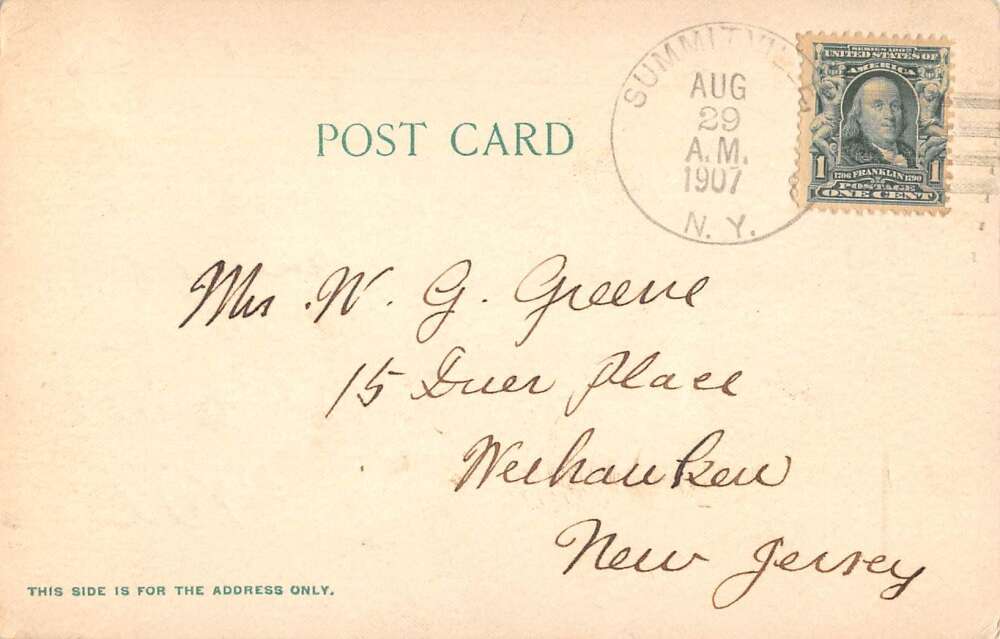 SUMMITVILLE
AUG
29
A.M.
1907
N. Y.
SERIES 1902
UNITED STATES OF
AMERICA
1 1
1706 FRANKLIN 1790
POSTAGE
ONE CENT
POST CARD
Mrs. W. G. Greene
15 Duer Place
Weehauken
New Jersey
THIS SIDE IS FOR THE ADDRESS ONLY.